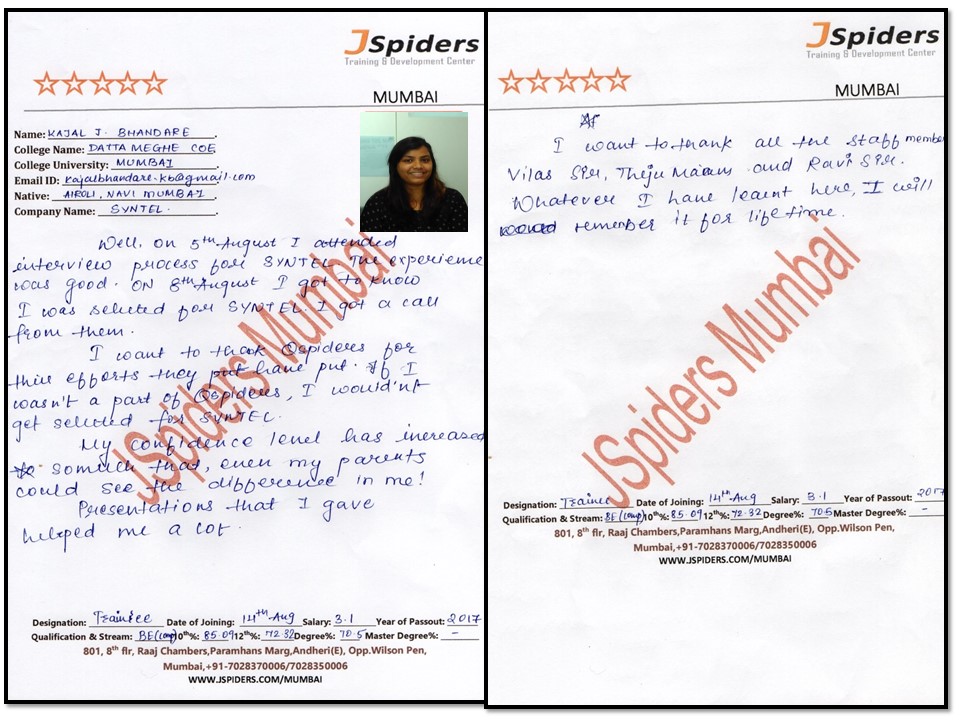 JSpiders
Training & Development Center
MUMBAI
Name: KAJAL J. BHANDARE
College Name: DATTA MEGHE COE
College University: MUMBAI
Email ID: kajalbhandare.kb@gmail.com
Native: AIROLI, NAVI MUMBAI
Company Name: SYNTEL.
Well, on 5th August I attended
interview process for SYNTEL. The experience
was good. ON 8th August I got to know
I was selected for SYNTEL. I got a call
from them.
I want to thank Qspiders for
thier efforts they put have put. If I
wasn't a part of Qspiders, I would'nt
get selected for SYNTEL.
My confidence level has increased
so much that, even my parents
could see the difference in me!
Presentations that I gave
helped me a lot.
JSpiders Mumbai
Designation: Trainee Date of Joining: 14th Aug Salary: 3.1 Year of Passout: 2017
Qualification & Stream: BE(Comp) 10th%: 85.09 12th%: 72.32 Degree%: 70.5 Master Degree%: -
801, 8th flr, Raaj Chambers,Paramhans Marg,Andheri(E), Opp.Wilson Pen,
Mumbai,+91-7028370006/7028350006
WWW.JSPIDERS.COM/MUMBAI
JSpiders
Training & Development Center
MUMBAI
I want to thank all the staff member
Vilas Sir, Theju Maam and Ravi Sir.
Whatever I have learnt here, I will
remember it for life time.
JSpiders Mumbai
Designation: Trainee Date of Joining: 14th Aug Salary: 3.1 Year of Passout: 2017
Qualification & Stream: BE(Comp) 10th%: 85.09 12th%: 72.32 Degree%: 70.5 Master Degree%: -
801, 8th flr, Raaj Chambers,Paramhans Marg,Andheri(E), Opp.Wilson Pen,
Mumbai,+91-7028370006/7028350006
WWW.JSPIDERS.COM/MUMBAI